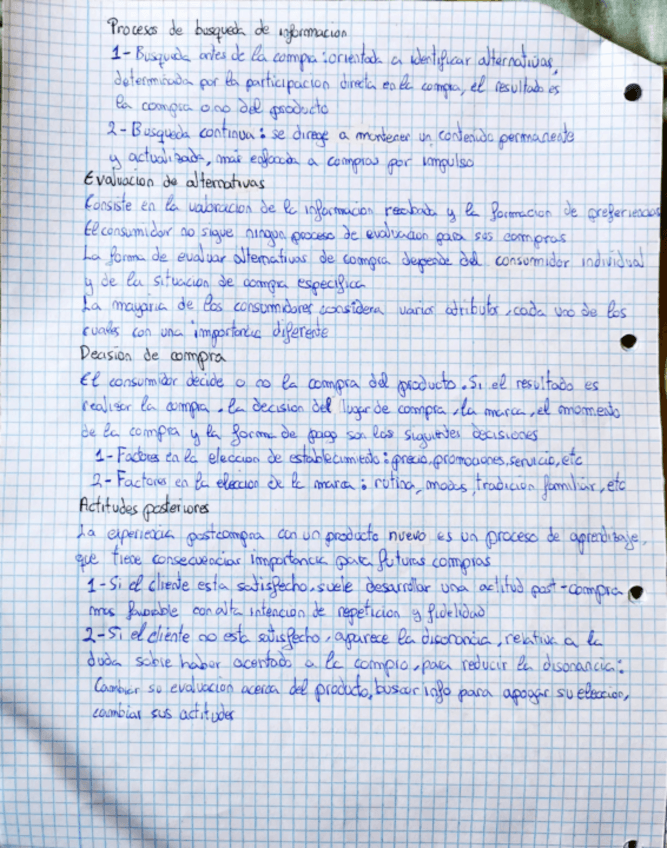 Procesos de busqueda de informacion
1- Busqueda antes de la compra: orientada a identificar alternativas,
determinada por la participacion directa en la compra, el resultado es
la compra o no del producto
2- Busqueda continua: se direge a mantener un contenido permanente
y actualizado, mas enfocada a compras por impulso
Evaluacion de alternativas
Consiste en la valoracion de la informacion recabada y la formacion de preferencias
El consumidor no sigue ningun proceso de evaluacion para sus compras
La forma de evaluar alternativas de compra depende del consumidor individual
y de la situacion de compra especifica
La mayoria de los consumidores considera varios atributos, cada uno de los
cuales con una importancia diferente
Decision de compra
El consumidor decide o no la compra del producto. Si el resultado es
realizar la compra, la decision del lugar de compra, la marca, el momento
de la compra y la forma de pago son las siguientes decisiones
1- Factores en la eleccion de establecimiento: precio, promociones, servicio, etc
2- Factores en la eleccion de la marca: rutina, modas, tradicion familiar, etc
Actitudes posteriores
La experiencia postcompra con un producto nuevo es un proceso de aprendizaje,
que tiene consecuencias importancia para futuras compras
1- Si el cliente esta satisfecho, suele desarrollar una actitud post-compra
mas favorable con alta intencion de repeticion y fidelidad
2- Si el cliente no esta satisfecho, aparece la disonancia, relativa a la
duda sobre haber acertado a la compra, para reducir la disonancia:
Cambiar su evaluacion acerca del producto, buscar info para apoyar su eleccion,
cambiar sus actitudes